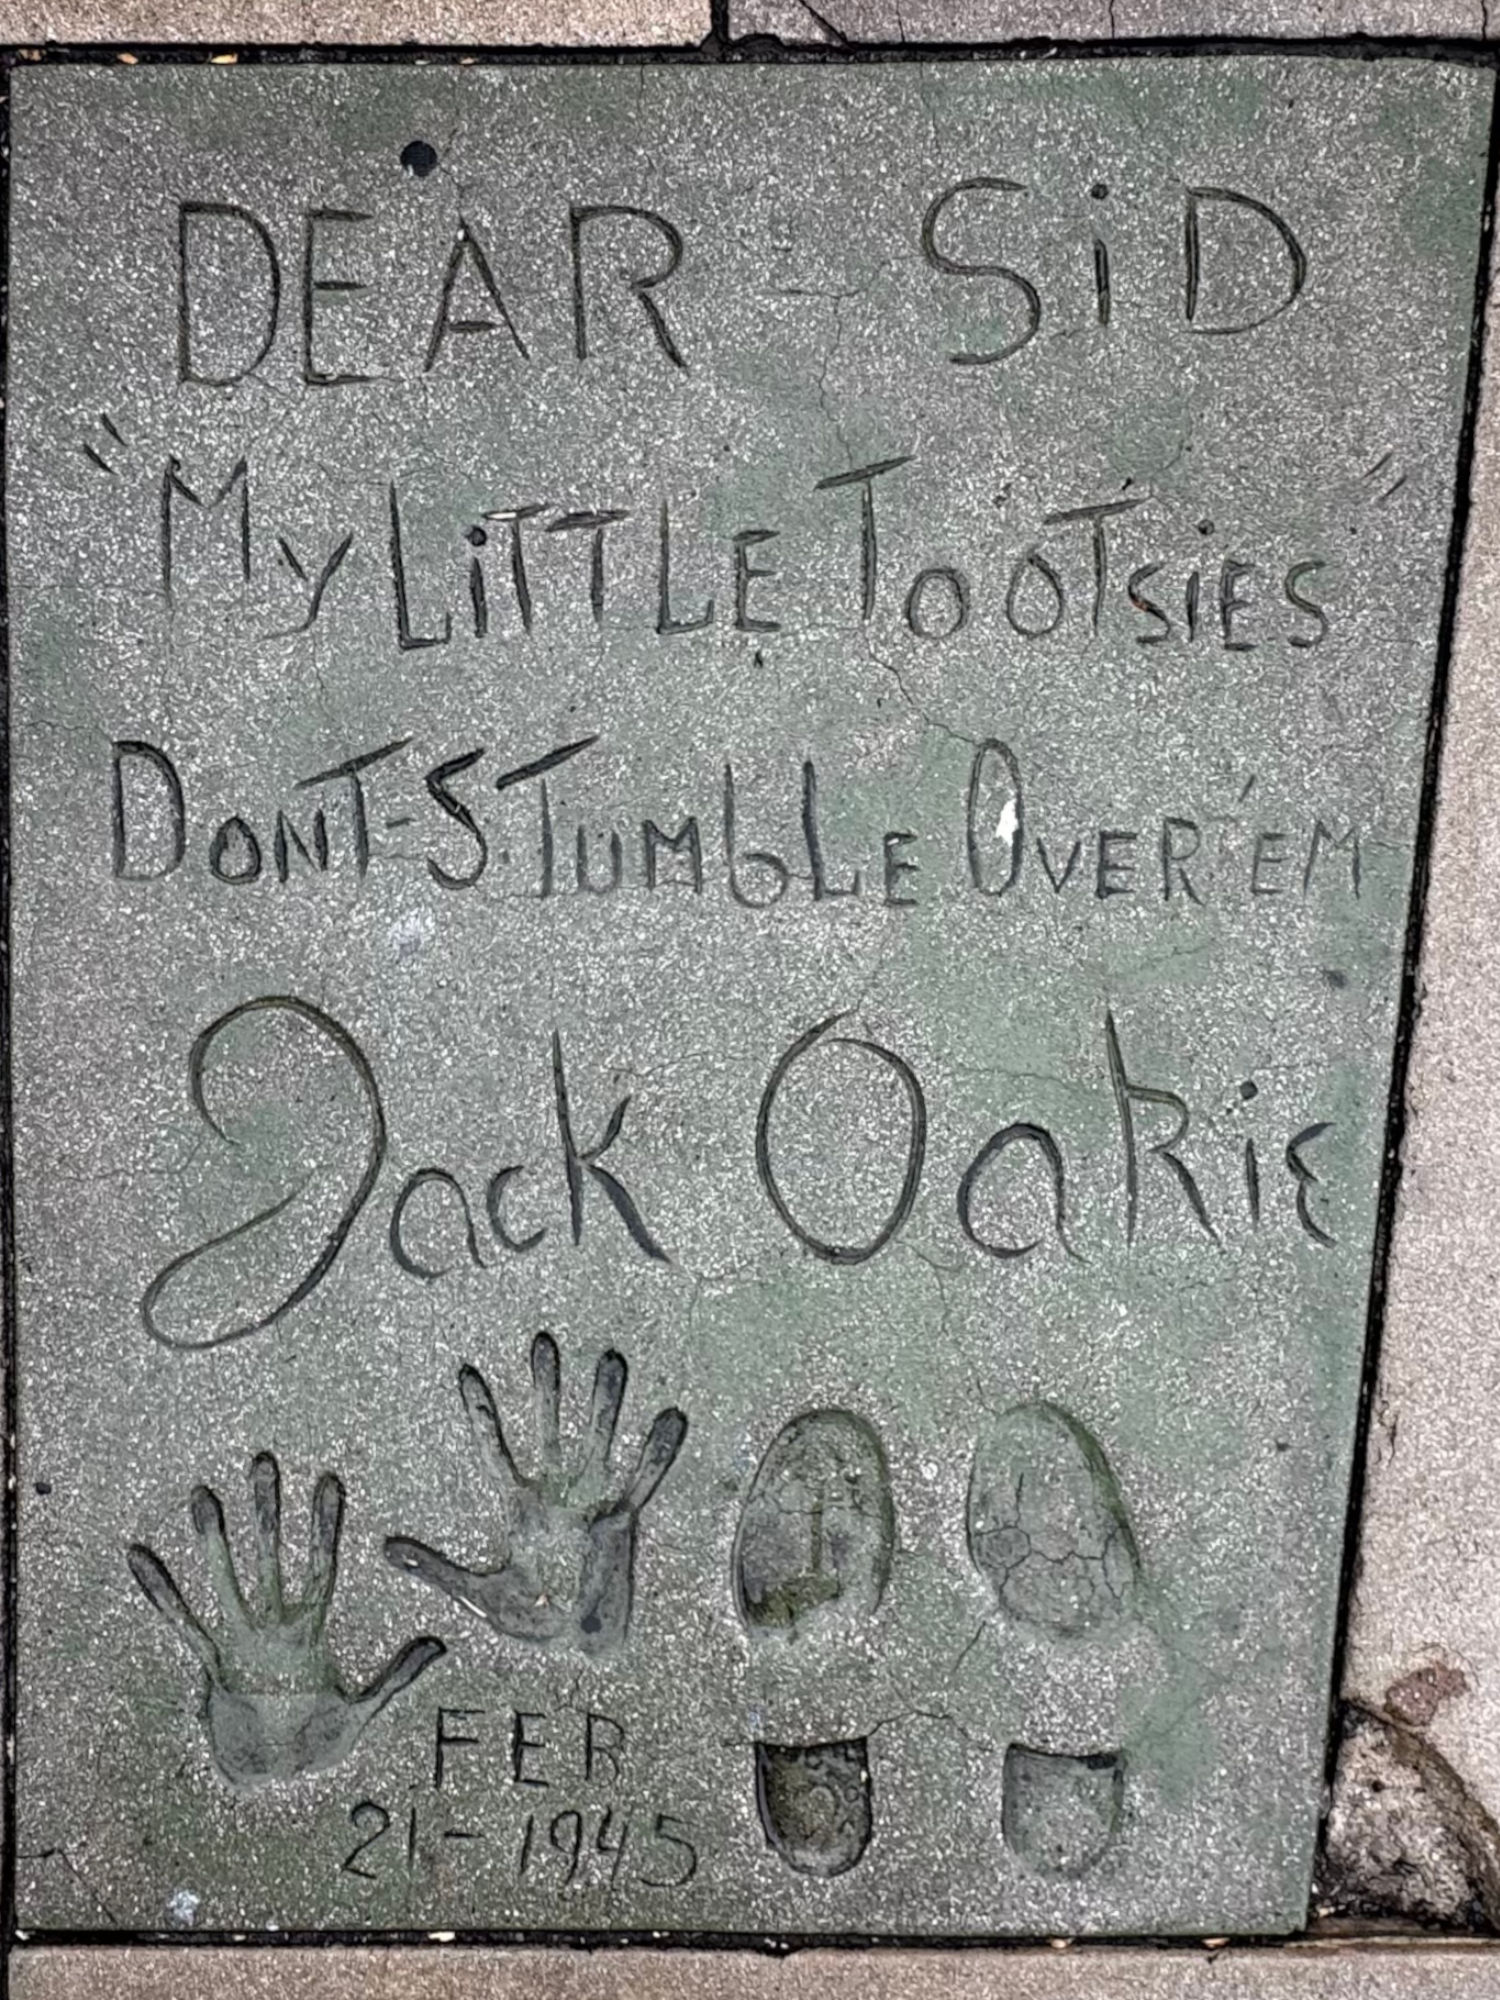 DEAR - SiD
"My LiTTLE TooTsiES"
DONT-STUMBLE OVER 'EM
Jack Oakie
FEB
21-1945